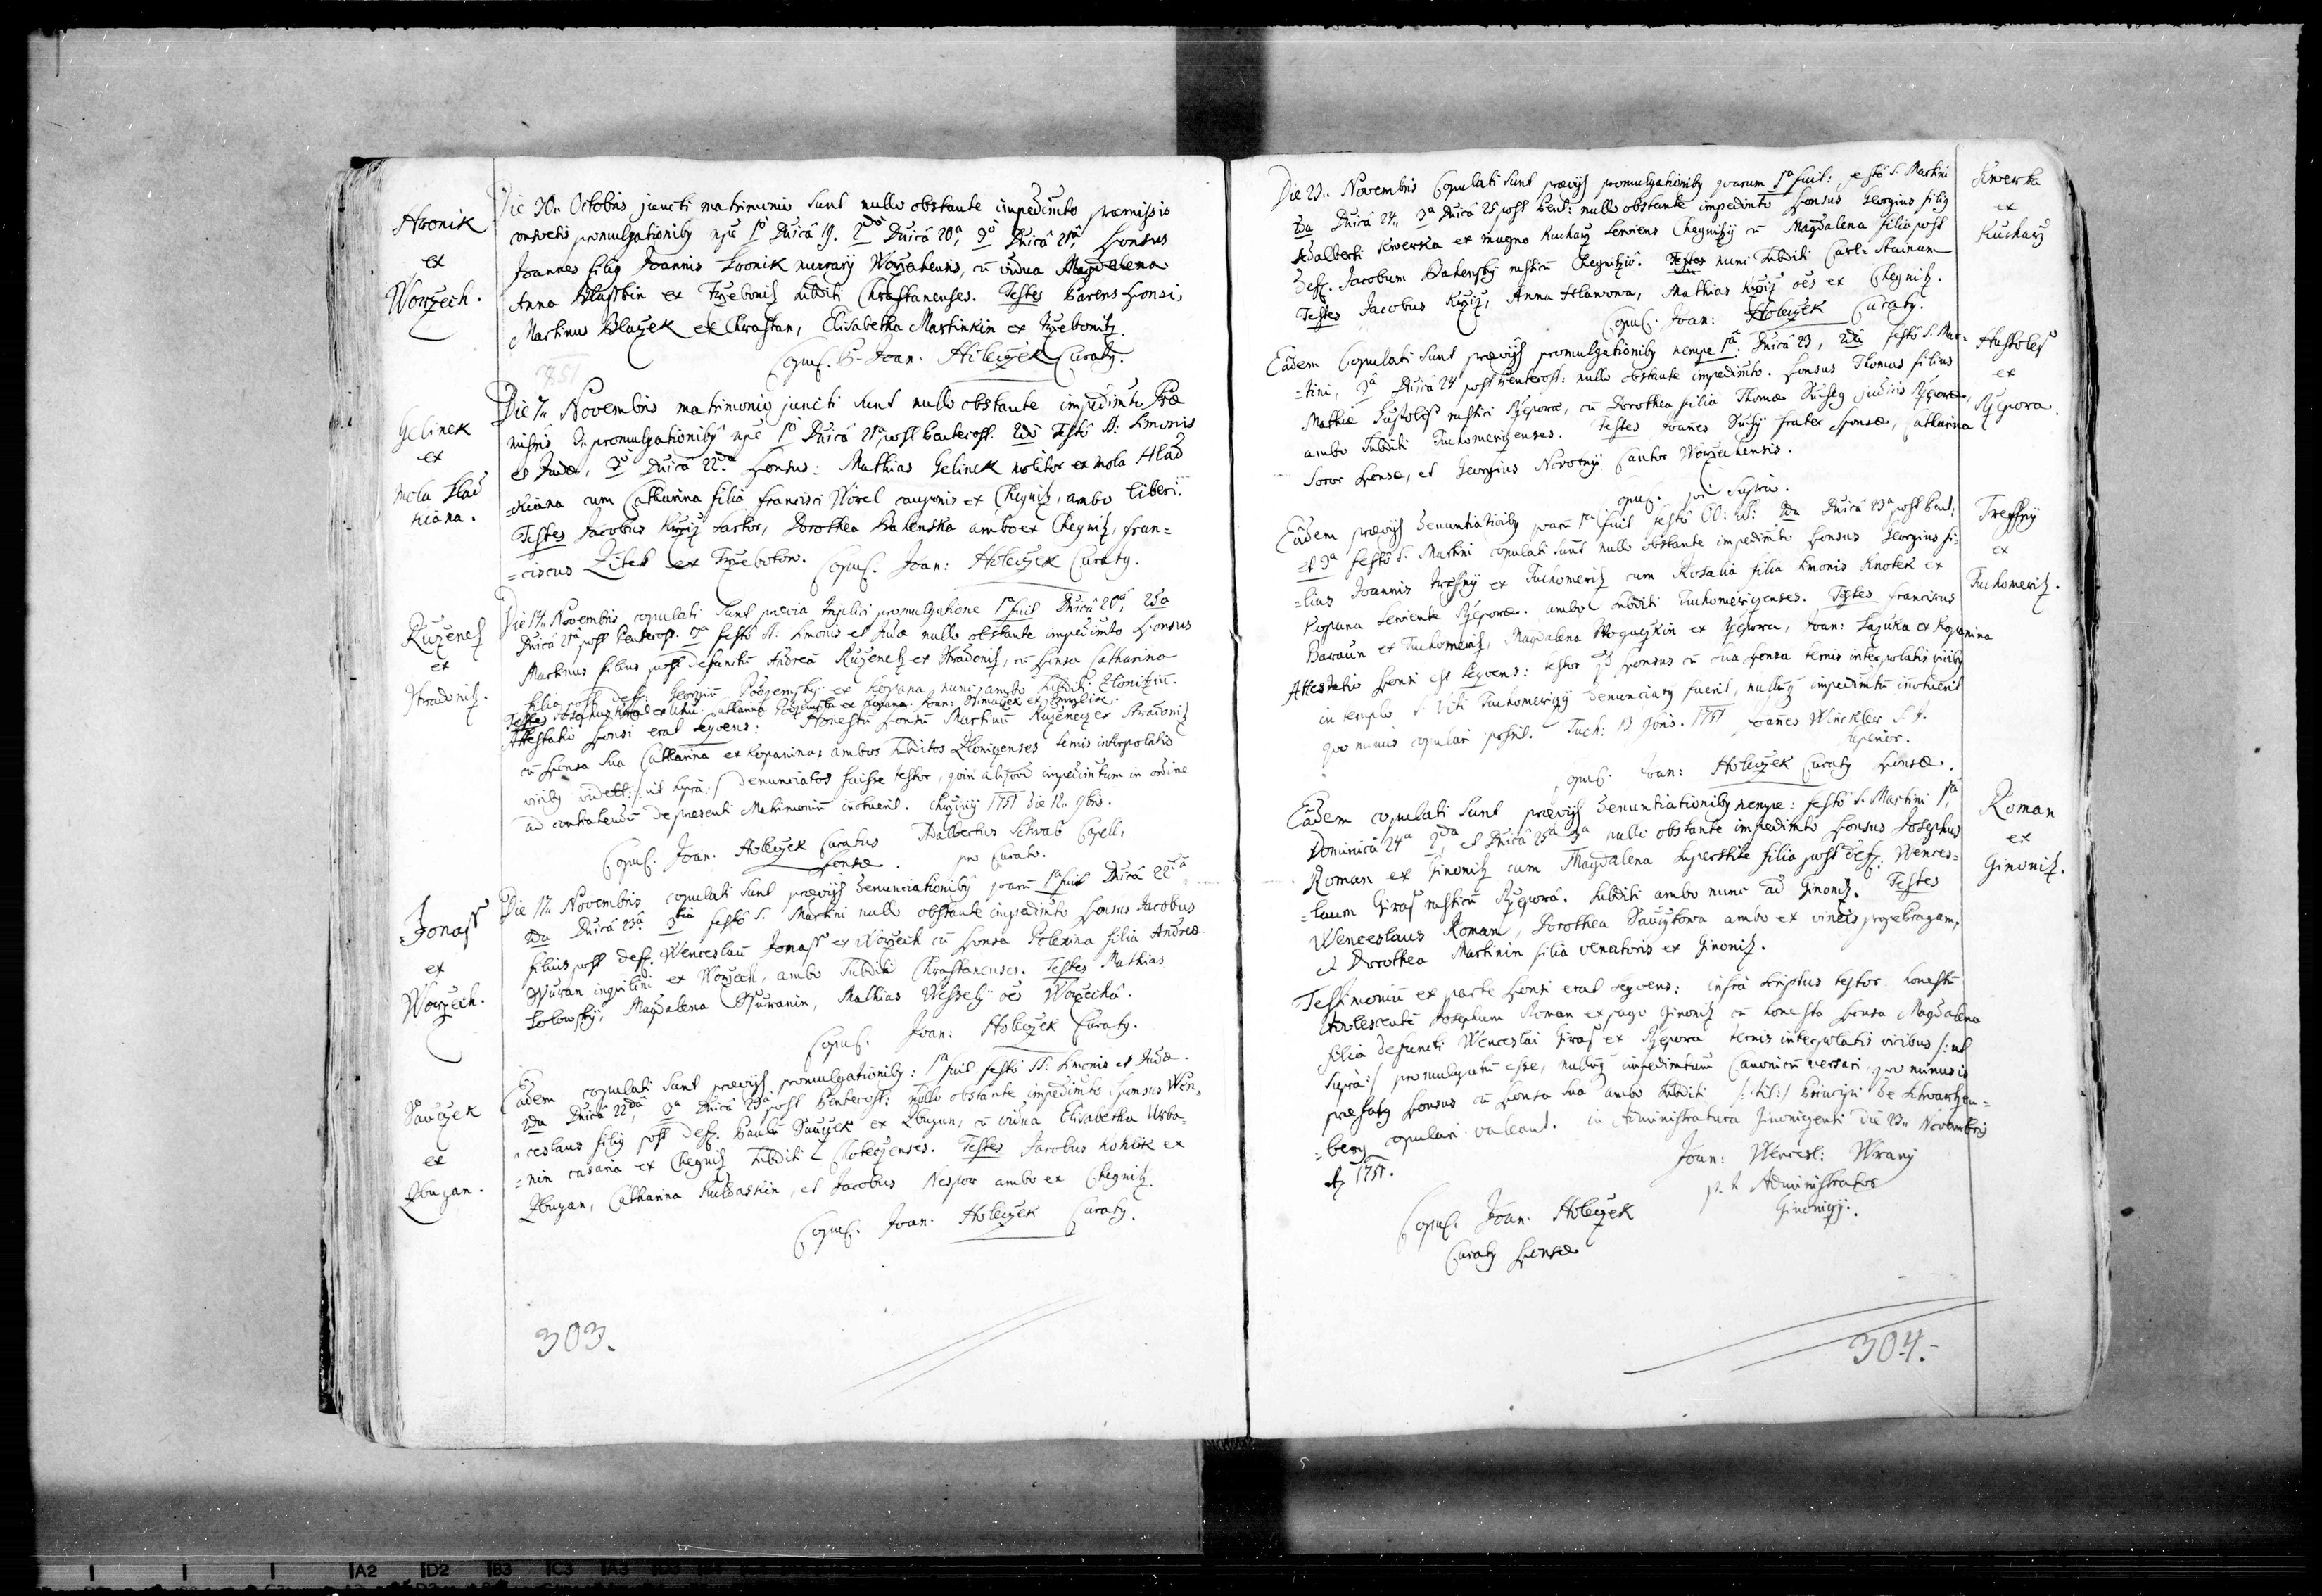 Hronik
ex
Worzech.
Die 30. Octobris juncti matrimonio sunt nullo obstante impedimto præmissis
consvetis promulgationibq npe 1o Dnicâ 19. 2do Dnicâ 20a, 3o Dnicâ 21a, Sponsus
Joannes filiq Joannis Hronik murarij Worzechensis, cũ vidua Magdalena
Anna Blasskin ex Trzebonitz subditi Chrastanenses. Testes Parens Sponsi,
Martinus Blazek ex Chrastan, Elisabetha Martinkin ex Trzebonitz.
Copul. P. Joan. Holeczek Curatq.
1751
Gelinek
ex
mola Hlad
kiana.
Die 7. Novembris matrimonio juncti sunt nullo obstante impedimto Præ
missis 3 promulgationibq npe 1o Dnicâ 21a post Penteost. 2do Festô SS: Simonis
et Judæ, 3o Dnicâ 22da Sponsus: Mathias Gelinek molitor ex mola Hlad
=kiana cum Catharina filiâ Francisci Worel cauponis ex Chegnitz, ambo liberi.
Testes Jacobus Krziz sartor, Dorothea Halenska ambo ex Chegnitz, Fran=
=ciscus Zitek ex Trzebotow. Copul. Joan: Holeczek Curatq.
Ruzenetz
ex
Stradonitz.
Die 17. Novembris copulati sunt prævia triplici promulgatione 1a fuit Dnicâ 20a, 2da
Dnicâ 21a post Penteost. 3a festô SS: Simonis et Judæ nullo obstante impedimto Sponsus
Martinus filius post defunctũ Andreã Ruzenetz ex Stradonitz, cũ sponsa Catharina
filia post def: Georgiũ Podzemsky ex Kopana nunc ambo subditi Zlonitzin.
Testes Josephus Catharina Podzemska ex Kopana. Joan:
Attestatio sponsi erat seqvens: Honestũ Sponsũ Martinũ Ruzenetz ex Stradonitz
cũ sponsa sua Catharina ex Kopanina, ambos subditos Zlonizenses ternis interpolatis
vicibq videlt: /: ut supra :/ denunciatos fuisse testor, qvin aliqvod impedimtum in ordine
ad contrahendũ de præsenti Matrimoniũ innotuerit. 1751 die 12. 9bris.
Copul. Joan. Holeczek Curatus Adalbertus Schwab Capell:
Sponsæ. pro Curato.
Jonass
ex
Worzech.
Die 17. Novembris copulati sunt prævijs denunciationibq qvarũ 1a fuit Dnicâ 22da
2da Dnicâ 23a 3tia festô S. Martini nullo obstante impedimto Sponsus Jacobus
filius post def. Wenceslaũ Jonass ex Worzech cũ Sponsa Polexina filia Andreæ
Wuran inqvilini ex Worzech, ambo subditi Chrastanenses. Testes Mathias
Sokowsky, Magdalena Wuranin, Mathias Wessely oẽs Worzechâ.
Copul. Joan: Holeczek Curatq.
Sauczek
ex
Zbuzan.
Eadem copulati sunt prævijs promulgationibq: 1a fuit festô SS: Simonis et Judæ.
2da Dnicâ 22da, 3a Dnicâ 23a post Penteost: nullo obstante impedimto, sponsus Wen=
=ceslaus filiq post def. Paulũ Sauczek ex Zbuzan, cũ vidua Elisabetha Urba=
=nin casaria ex Chegnitz subditi Choteczenses. Testes Jacobus Kohlik ex
Zbuzan, Catharina Huldaskin, et Jacobus Nespor ambo ex Chegnitz.
Copul. Joan. Holeczek Curatq.
303.
Die 23. Novembris Copulati sunt prævijs promulgationibq qvarum 1a fuit: festô S. Martini
2da Dnicâ 24, 3a Dnicâ 25 post Pent: nullo obstante impedimto Sponsus Georgius filiq
Adalberti Kwerka ex magno Kucharz serviens Chegnitzij cũ Magdalena filia post
def. Jacobum Halensky rusticũ Chegnitziõ. Testes nunc subditi
Testes Jacobus Krziz, Anna Hlawowa, Mathias Krziz oẽs ex Chegnitz.
Copul. Joan: Holeczek Curatq.
Kwerka
ex
Kucharz
Eadem Copulati sunt prævijs promulgationibq nempe 1a: Dnicâ 23, 2da festô S. Mar=
=tini, 3a Dnicâ 24 post Penteost: nullo obstante impedimto. Sponsus Thomas filius
Mathiæ rustici Rzeporâ, cũ Dorothea filia Thomæ Suchy judicis Rzeporæ,
ambo subditi Tuchomerizenses. Testes Joanes Suchy frater sponsæ, Catharina
Soror sponsæ, et Georgius Novotny Cantor Worzechensis.
Copul. qvi Supra.
ex
Rzepora.
Eadem prævijs denuntiatiõibq qvarũ 1a fuit festô OO: SS: 2da Dnicâ 23a post Pent:
et 3a festô S. Martini copulati sunt nullo obstante impedimto Sponsus Georgius fi=
=lius Joannis Tressny ex Tuchomeritz cum Rosalia filia Simonis Knotek ex
Kopana serviente Rzeporæ. ambo subditi Tuchomerizenses. Testes Franciscus
Baraun ex Tuchomeritz, Magdalena Wognaczkin ex Rzepora, Joan: ex Kopanina
Attestatio Sponsi est seqvens: testor qd Sponsus cũ sua sponsa ternis interpolatis vicibq
in templo S. Viti Tuchomerizij denunciatq fuerit, nullũq impedimtũ innotuerit
qvo minus copulari possit. Tuch: 13 9bris. 1751 Joanes Winckler S. J.
superior.
Copul. Joan: Holeczek Curatq Sponsæ.
Tressny
ex
Tuchomeritz.
Eadem copulati sunt prævijs denuntiationibq nempe: festô S. Martini 1a,
Dominicâ 24a 2da, et Dnicâ 25a 3a nullo obstante impedimto Sponsus Josephus
Roman ex Ginonitz cum Magdalena superstite filia post def. Wences=
=laum Giraf rusticũ Rzeporâ. Subditi ambo nunc ad Ginonitz. Testes
Wenceslaus Roman, Dorothea Sauczkowa ambo ex vineis prope Pragam,
et Dorothea Martinin filia venatoris ex Ginonitz.
Roman
ex
Ginonitz.
Testimoniũ ex parte Sponsi erat seqvens: infra scriptus testor honestũ
Adolescentẽ Josephum Roman ex pago Ginonitz cũ honesta sponsa Magdalena
filia defuncti Wenceslai Giraf ex Rzepora ternis interpolatis vicibus /: ut
supra :/ promulgatũ esse, nullũq impedimtum Canonicũ versari, qvo minus is
præfatq Sponsus cũ sponsa sua ambo subditi /: tit: / Principi de Schwartzen=
=berg copulari valeant. in Administratura Ginonizensi die 23. Novembris
Aq 1751.
Joan: Wencesl: Wrany
p. t. Administrator
Ginonizij.
Copul. Joan. Holeczek
Curatq Sponsæ
304.